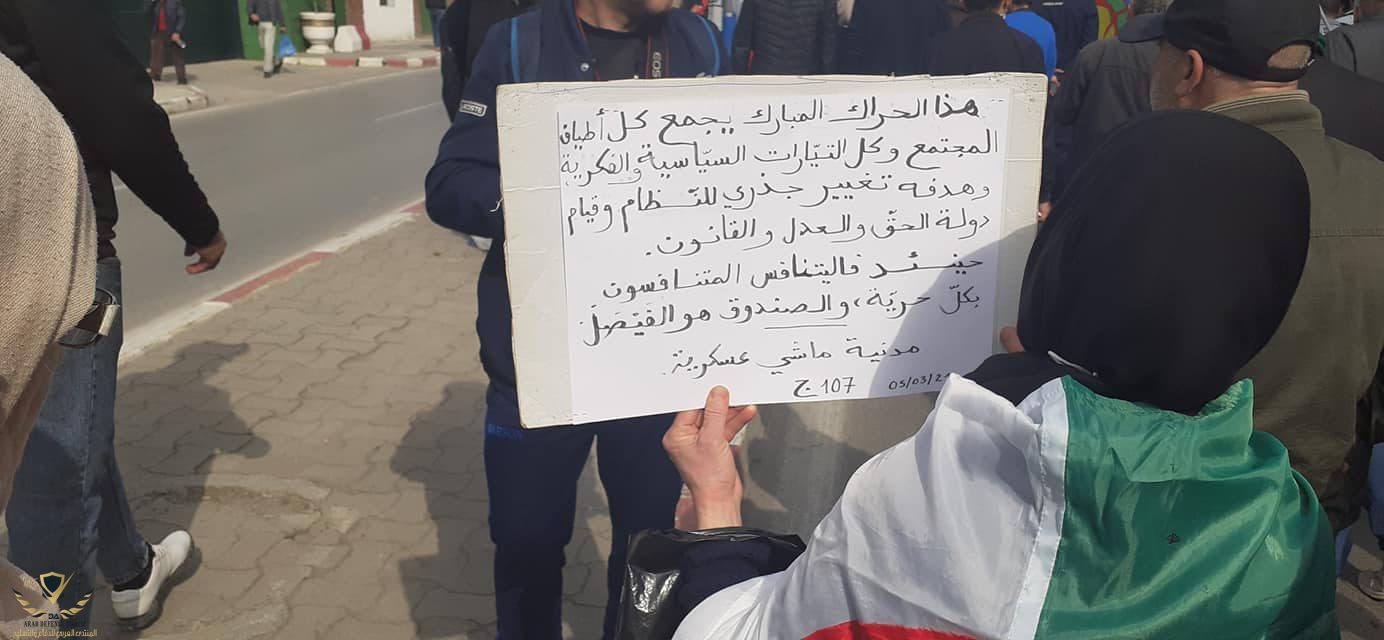 هذا الحراك المبارك يجمع كلّ أطياف
المجتمع وكل التيّارات السيّاسية والفكرية
وهدفه تغيير جذري للنّظام وقيام
دولة الحقّ والعدل والقانون.
حينئذ فاليتنافس المتنافسون
بكلّ حريّة، والصندوق هو الفَيْصَلْ
مدنية ماشي عسكرية.
ج 107 05/03/21
EOS
LACOSTE
ARAB DEFENSE
المنتدى العربي للدفاع والتسليح